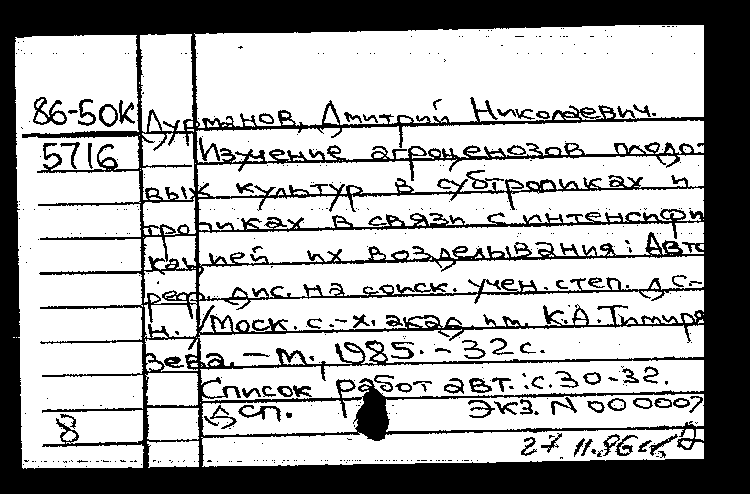 86-50К Дурманов, Дмитрий Николаевич.
5716 Изучение агроценозов плодо-
вых культур в субтропиках и
тропиках в связи с интенсифи
кацией их возделывания: Авто
реф. дис. на соиск. учен. степ. д с-
н. /Моск. с.-х. акад им. К.А. Тимиря
зева. – М., 1985. – 32 с.
Список работ авт.: с. 30-32.
Дсп. Экз. N 000007
8
27 11.86